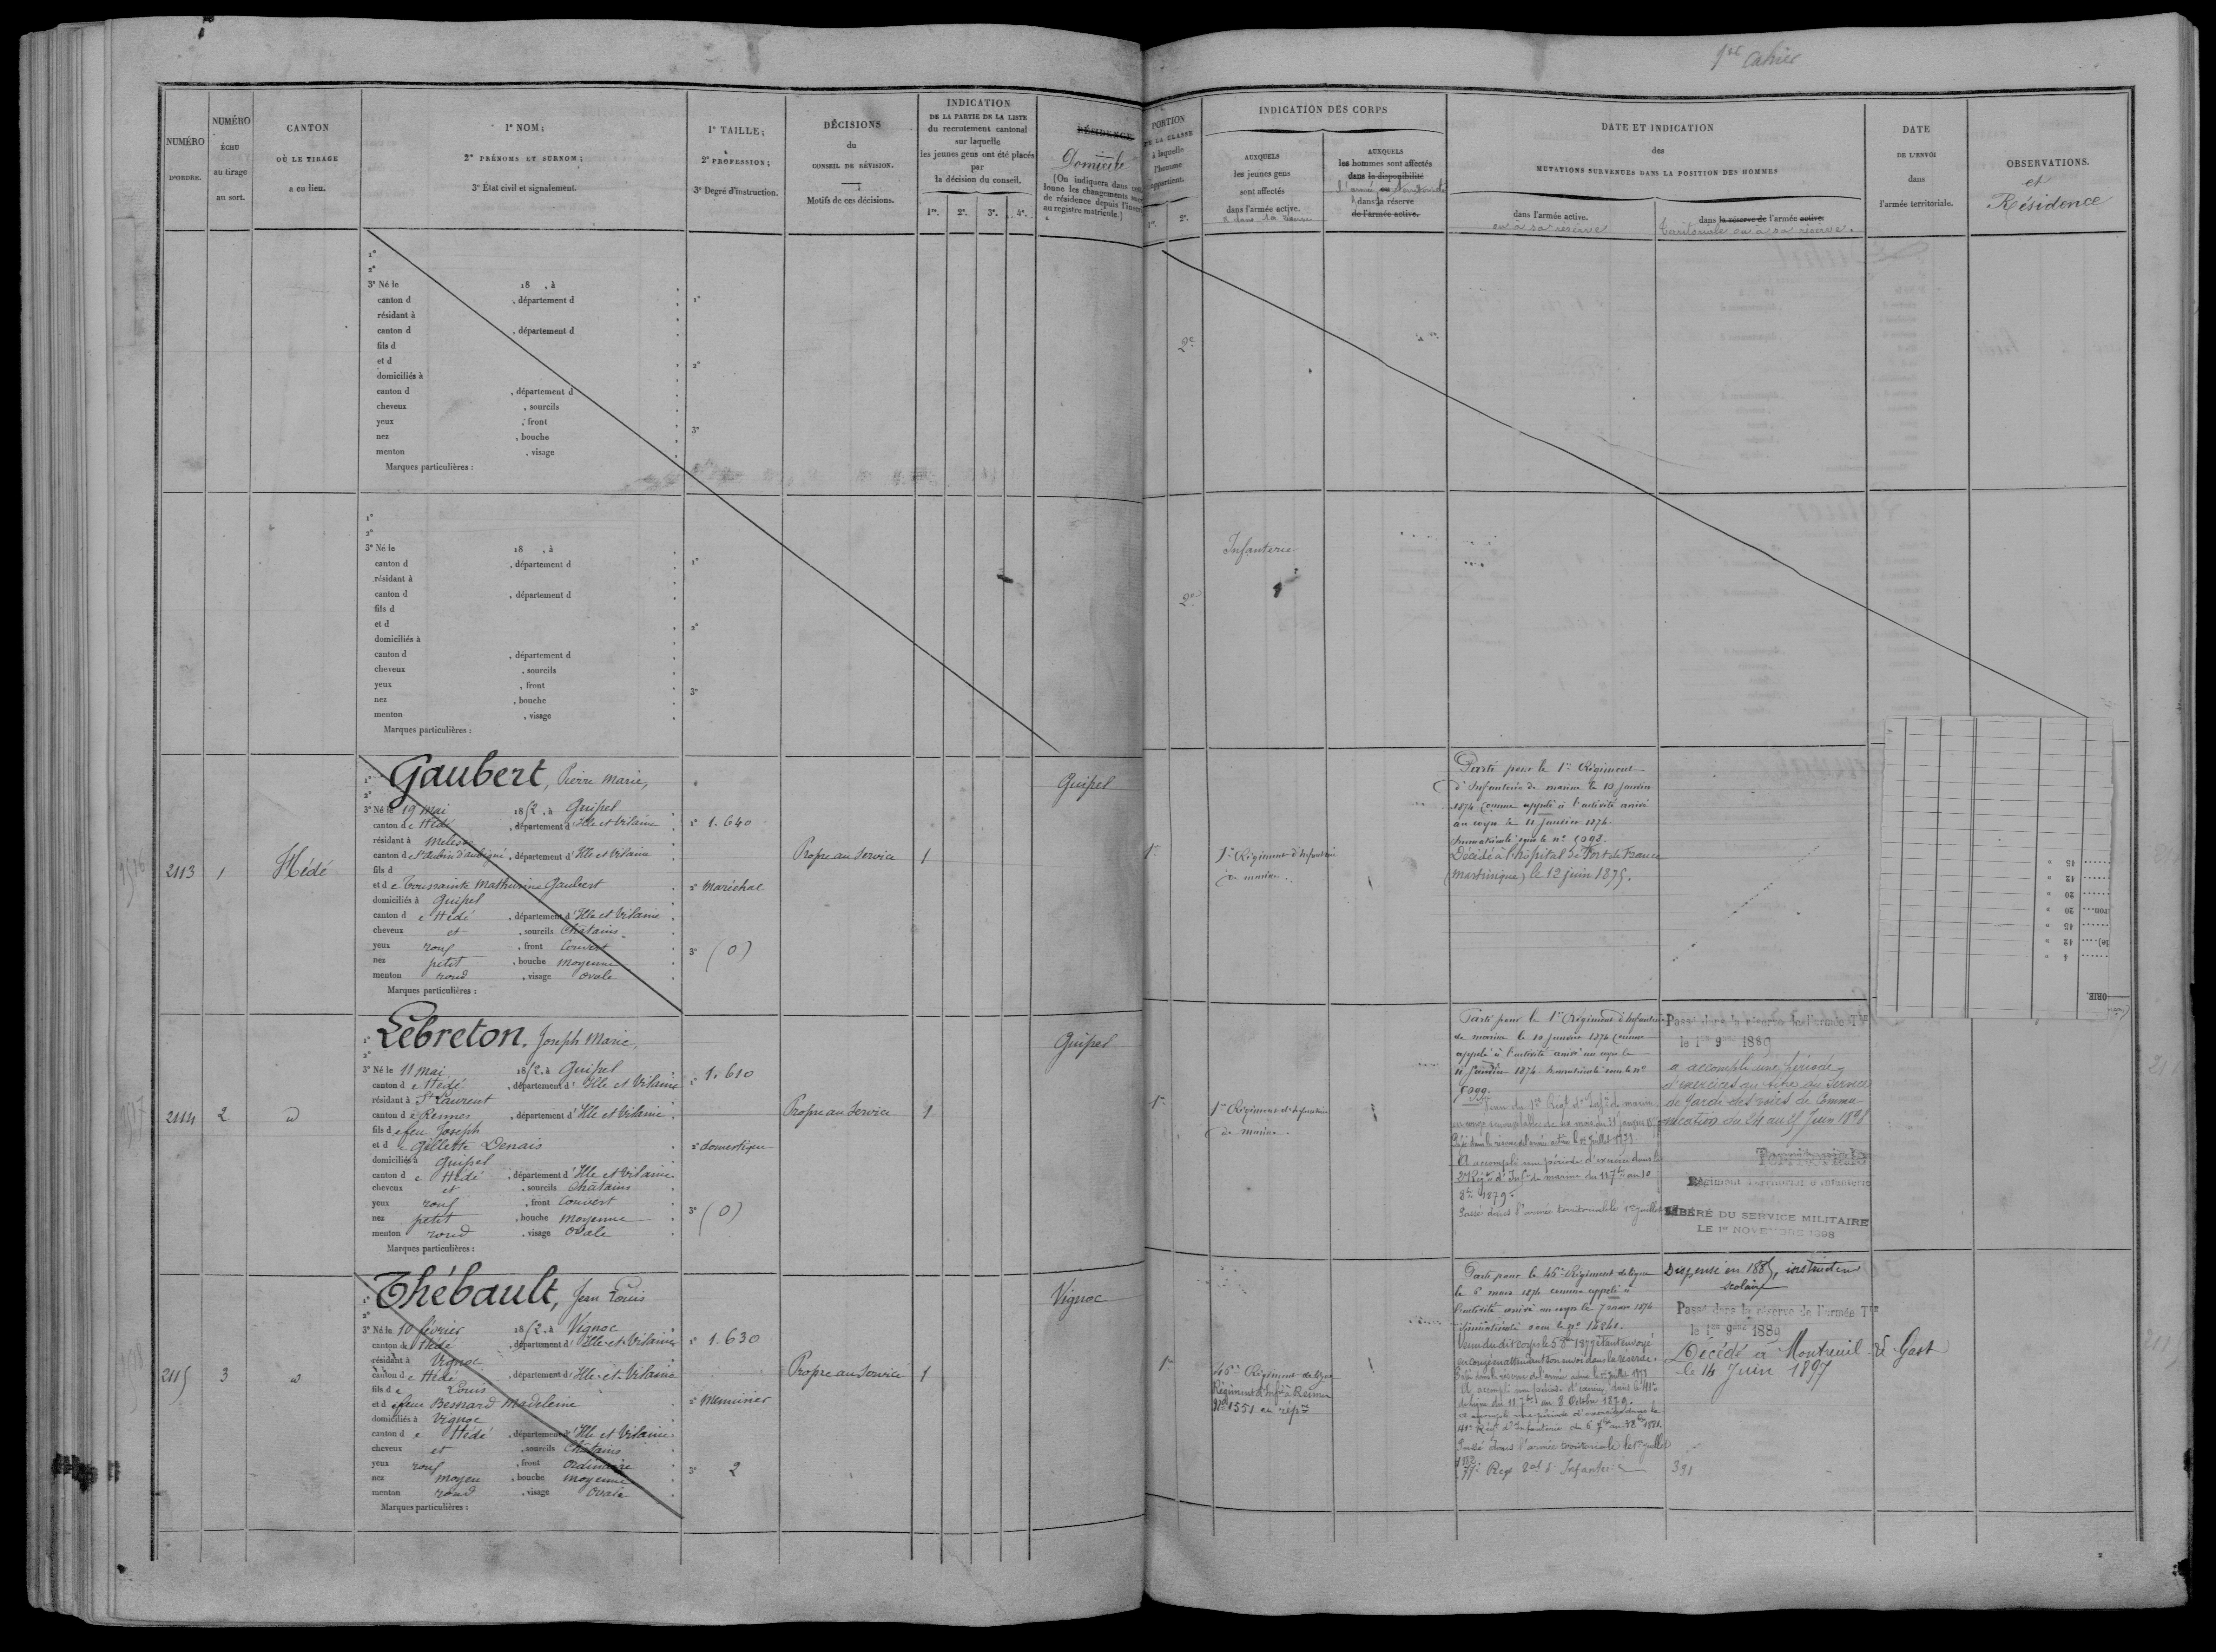 1er Cahier
NUMÉRO
D'ORDRE.
NUMÉRO
ÉCHU
au tirage
au sort.
CANTON
OÙ LE TIRAGE
a eu lieu.
1° NOM;
2° PRÉNOMS ET SURNOM;
3° État civil et signalement.
1° TAILLE;
2° PROFESSION;
3° Degré d'instruction.
DÉCISIONS
du
CONSEIL DE RÉVISION.
Motifs de ces décisions.
INDICATION
DE LA PARTIE DE LA LISTE
du recrutement cantonal
sur laquelle
les jeunes gens ont été placés
par
la décision du conseil.
1re. 2e. 3e. 4e.
RÉSIDENCE
Domicile
(On indiquera dans
lonne les changements
de résidence depuis
au registre matricule.)
PORTION
DE LA CLASSE
à laquelle
l'homme
appartient.
1re. 2e.
INDICATION DES CORPS
AUXQUELS
les jeunes gens
sont affectés
dans l'armée active.
AUXQUELS
les hommes sont affectés
dans la disponibilité
ou
dans la réserve
de l'armée active.
DATE ET INDICATION
des
MUTATIONS SURVENUES DANS LA POSITION DES HOMMES
dans l'armée active.
ou à sa réserve
dans la réserve de l'armée active.
territoriale ou à sa réserve.
DATE
DE L'ENVOI
dans
l'armée territoriale.
OBSERVATIONS.
et
Résidence
1°
2°
3° Né le 18 , à
canton d , département d
résidant à
canton d , département d
fils d
et d
domiciliés à
canton d , département d
cheveux , sourcils
yeux , front
nez , bouche
menton , visage
Marques particulières :
1°
2°
3°
2e
1°
2°
3° Né le 18 , à
canton d , département d
résidant à
canton d , département d
fils d
et d
domiciliés à
canton d , département d
cheveux , sourcils
yeux , front
nez , bouche
menton , visage
Marques particulières :
1°
2°
3°
2e
Infanterie
2113
1
Hédé
1° Gaubert, Pierre Marie,
2°
3° Né le 19 mai 1852, à Guipel
canton de Hédé, département d'Ille et Vilaine
résidant à Melesse
canton de St Aubin d'aubigné, département d'Ille et Vilaine
fils d
et de Toussainte Mathurine Gaubert
domiciliés à Guipel
canton de Hédé, département d'Ille et Vilaine
cheveux et, sourcils Châtains
yeux roux, front Couvert
nez petit, bouche moyenne
menton rond, visage ovale
Marques particulières :
1° 1.640
2° Maréchal
3° (0)
Propre au Service
1
Guipel
1re
1er Régiment d'Infanterie
de marine.
Parti pour le 1er Régiment
d'Infanterie de marine le 10 Janvier
1874 comme appelé à l'activité arrivé
au corps le 11 Janvier 1874
Immatriculé sous le n°
Décédé à l'hôpital de Fort de France
(Martinique) le 12 juin 1875.
2114
2
d
1° Lebreton, Joseph Marie
2°
3° Né le 11 mai 1852, à Guipel
canton de Hédé, département d'Ille et Vilaine
résidant à St Laurent
canton de Rennes, département d'Ille et Vilaine
fils de feu Joseph
et de Gillette Denais
domiciliés à Guipel
canton de Hédé, département d'Ille et Vilaine
cheveux et, sourcils Châtains
yeux roux, front Couvert
nez petit, bouche moyenne
menton rond, visage Ovale
Marques particulières :
1° 1.610
2° domestique
3° (0)
Propre au Service
1
Guipel
1re
1er Régiment d'Infanterie
de marine.
Parti pour le 1er Régiment d'Infanterie
de marine le 10 Janvier 1874 comme
appelé à l'activité arrivé au corps le
11 Janvier 1874 Immatriculé sous le n°
A accompli une période d'exercices dans le
2e Régt d'Infie de marine du 11 7bre au 10
8bre 1879.
Passé dans l'armée territoriale le 1er juillet
Passé dans la réserve de l'armée Tle
le 1er 9bre 1889
a accompli une période
d'exercices au titre du Service
de Garde des voies de Commu
nication du 24 au 25 Juin 1898
Territoriale
Régiment Territorial d'Infanterie
LIBÉRÉ DU SERVICE MILITAIRE
LE 1er NOVEMBRE 1898
2115
3
d
1° Thébault, Jean Louis
2°
3° Né le 10 février 1852, à Vignoc
canton de Hédé, département d'Ille et Vilaine
résidant à Vignoc
canton de Hédé, département d'Ille et Vilaine
fils de Louis
et de feue Besnard Madeleine
domiciliés à Vignoc
canton de Hédé, département d'Ille et Vilaine
cheveux et, sourcils Châtains
yeux roux, front Ordinaire
nez moyen, bouche moyenne
menton rond, visage Ovale
Marques particulières :
1° 1.630
2° Menuisier
3° 2
Propre au Service
1
Vignoc
1re
46e Régiment de ligne
Régiment d'Infie à Rennes
N° 1551 au répre
Parti pour le 46e Régiment de ligne
le 6 mars 1874 comme appelé à
l'activité arrivé au corps le 7 mars 1874
Immatriculé sous le n°
en congé en attendant son envoi dans la réserve.
A accompli une période d'exercices dans le 41e
de ligne du 11 7bre au 8 Octobre 1879.
Passé dans l'armée territoriale le 1er juillet
Dispensé en 1885, instructeur
scolaire
Passé dans la réserve de l'armée Tle
le 1er 9bre 1889
Décédé à Montreuil s/ Gast
le 14 Juin 1897
331